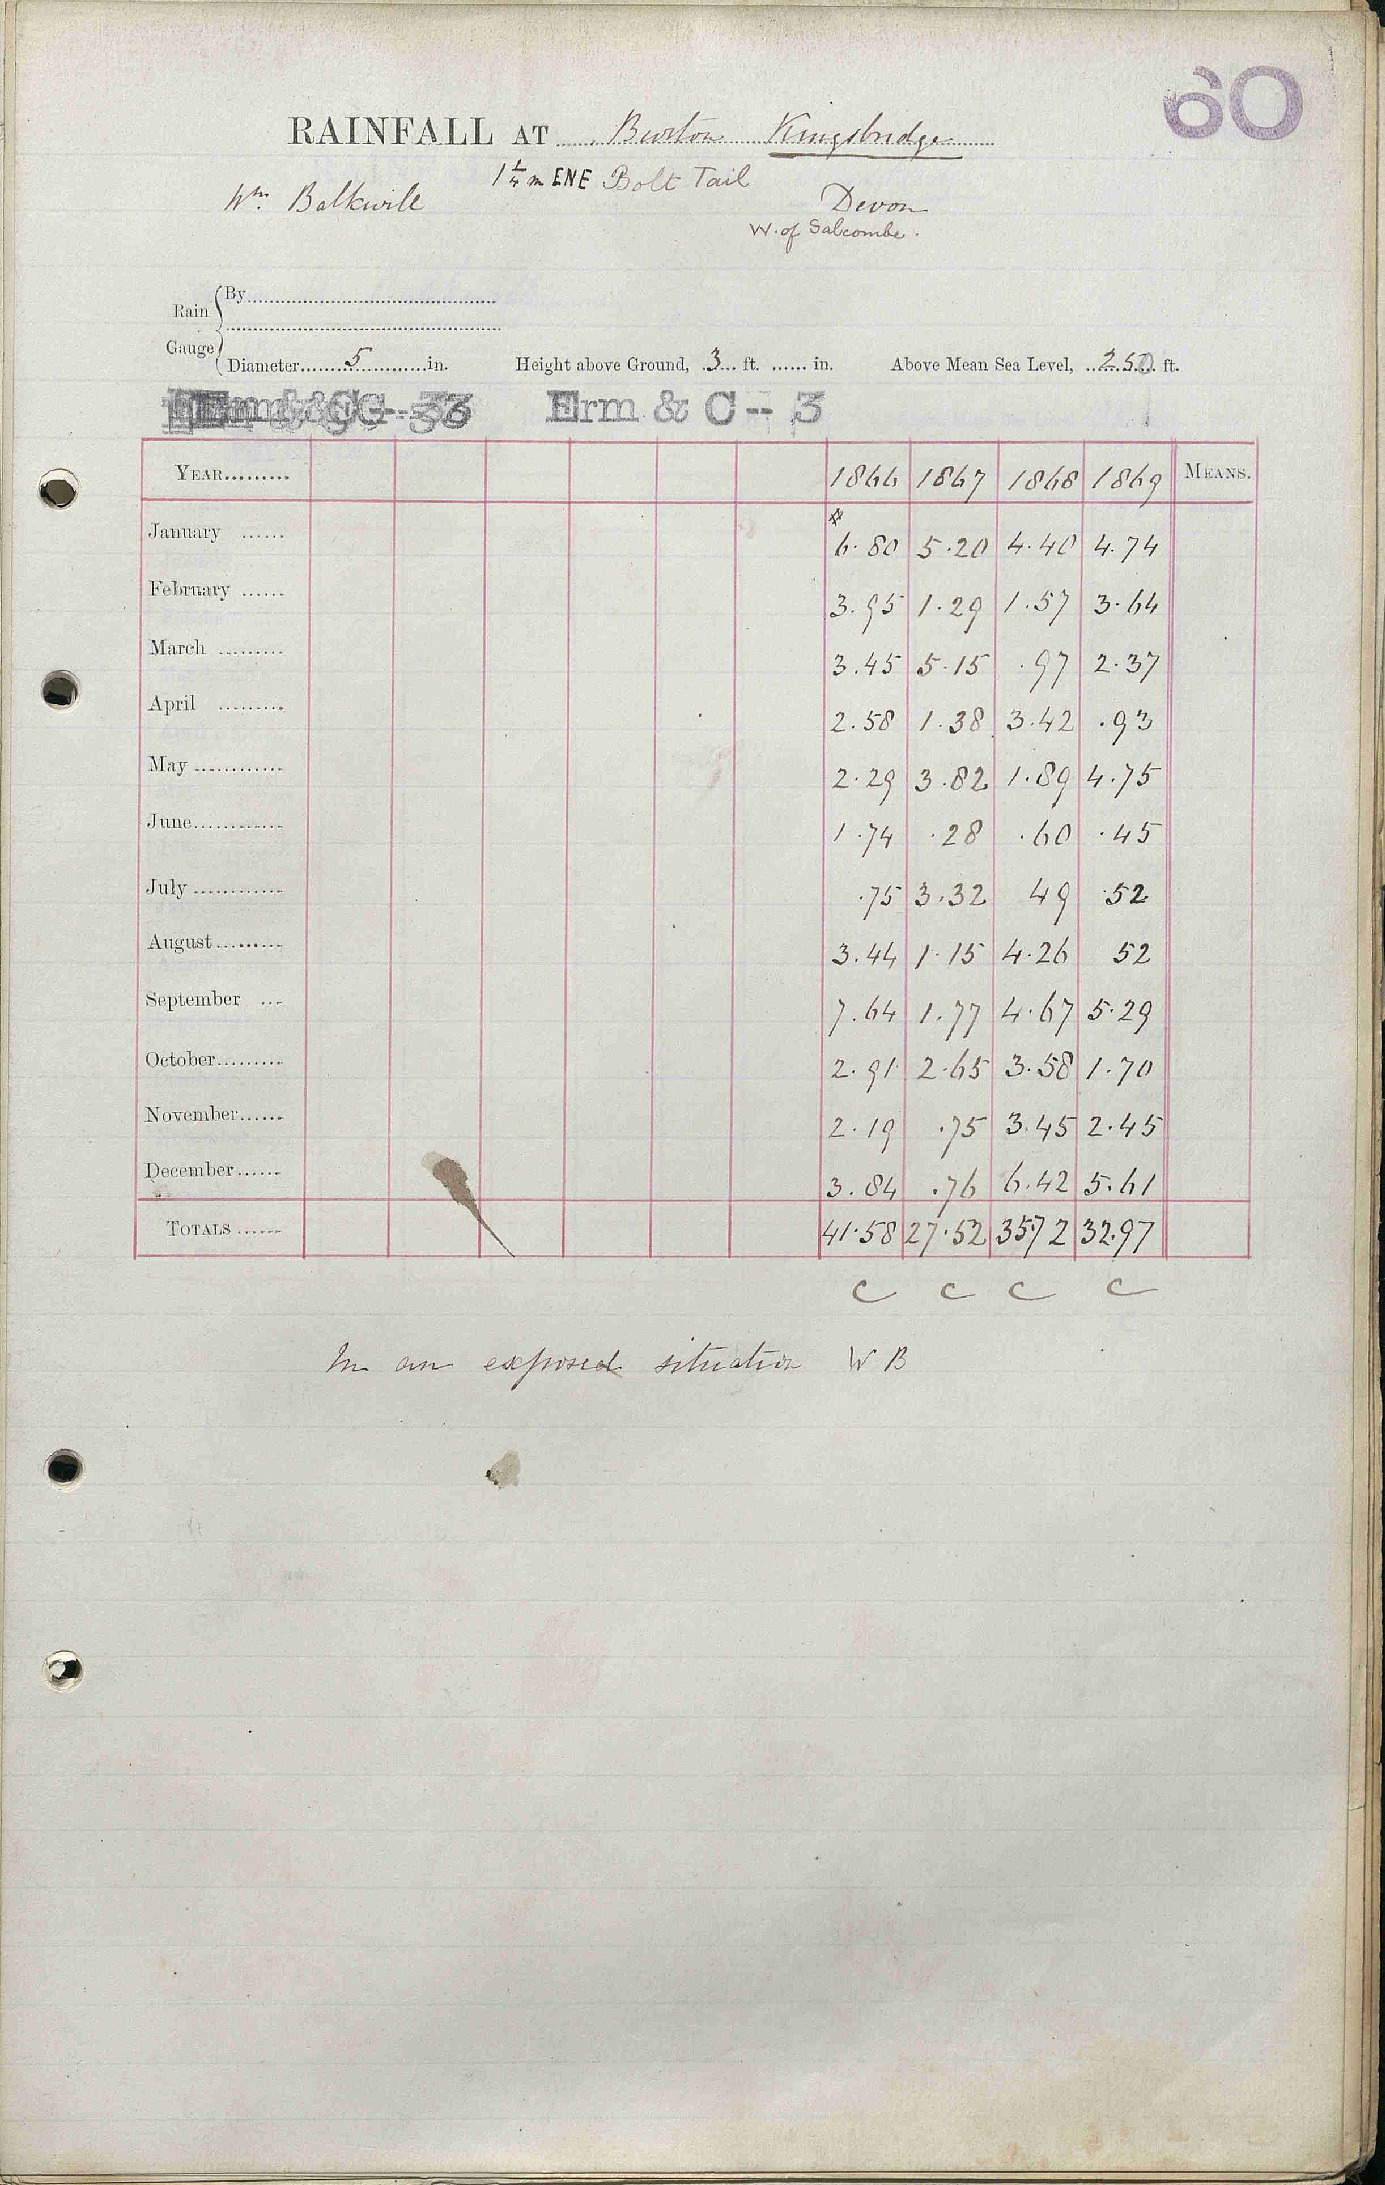 60
RAINFALL AT Burton Kingsbridge
1¼ m ENE Bolt Tail
Wm. Balkwill Devon
W. of Salcombe.
Rain Gauge
By
Diameter 5 in. Height above Ground, 3 ft. in. Above Mean Sea Level, 250 ft.
Erm & C -- 3
YEAR 1866 1867 1868 1869 MEANS.
#
January 6.80 5.20 4.40 4.74
February 3.95 1.29 1.57 3.64
March 3.45 5.15 .97 2.37
April 2.58 1.38 3.42 .93
May 2.29 3.82 1.89 4.75
June 1.74 .28 .60 .45
July .75 3.32 49 .52
August 3.44 1.15 4.26 52
September 7.64 1.77 4.67 5.29
October 2.91 2.65 3.58 1.70
November 2.19 .75 3.45 2.45
December 3.84 .76 6.42 5.61
TOTALS 41.58 27.52 35.72 32.97
C C C C
In an exposed situation W B